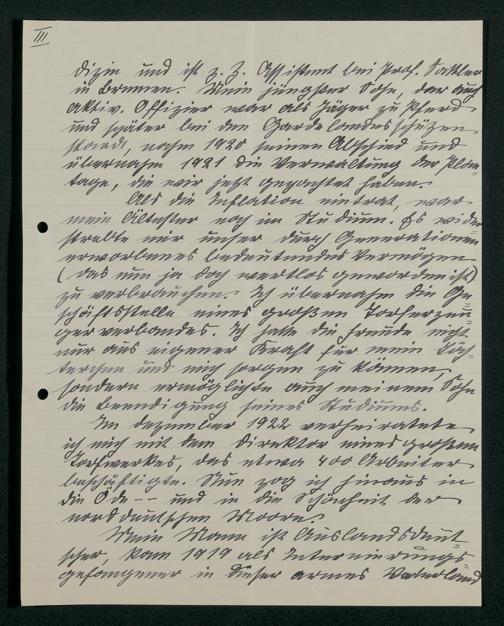 III
dizin und ist z. Z. Assistent bei Prof. Sattler
in Bremen. Mein jüngster Sohn, der auch
aktiv. Offizier war als Jäger zu Pferd
und später bei den Gardelandesschützen
stand, nahm 1920 seinen Abschied und
übernahm 1921 die Verwaltung der Plan-
tage, die wir jetzt gepachtet haben.
Als die Inflation eintrat, war
mein Ältester noch im Studium. Es wider-
strebte mir unser durch Generationen
erworbenes bedeutendes Vermögen
(das nun ja doch wertlos geworden ist)
zu verbrauchen. Ich übernahm die Ge-
schäftsstelle eines großen Torferzeu-
gerverbandes. Ich hatte die Freude nicht
nur aus eigener Kraft für mein Töch-
terchen und mich sorgen zu können,
sondern ermöglichte auch meinem Sohn
die Beendigung seines Studiums.
Im Dezember 1922 verheiratete
ich mich mit dem Direktor eines grossen
Torfwerkes, das etwa 400 Arbeiter
beschäftigte. Nun zog ich hinaus in
die Öde -- und in die Schönheit der
norddeutschen Moore.
Mein Mann ist Auslandsdeut-
scher, kam 1919 als Internierungs-
gefangener in dieser armes Vaterland